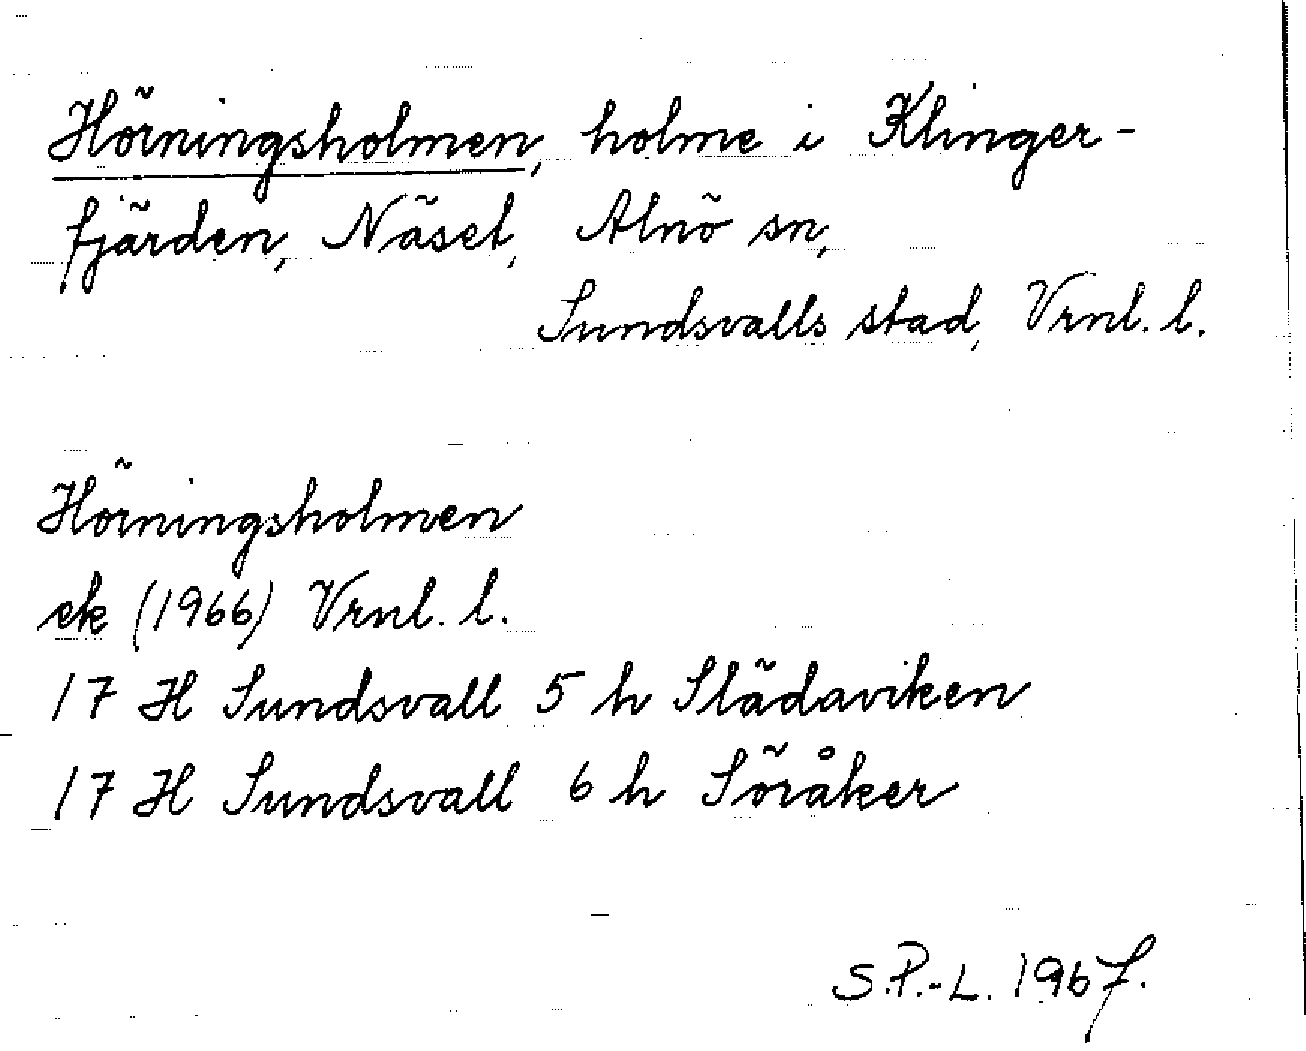 Hörningsholmen, holme i Klinger-
fjärden, Näset, Alnö sn,
Sundsvalls stad, Vrnl. l.
Hörningsholmen
ek (1966) Vrnl. l.
17 H Sundsvall 5 h Slädaviken
17 H Sundsvall 6 h Söråker
S.P.-L. 1967.